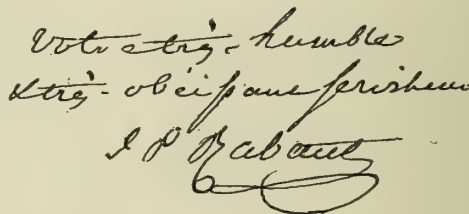 Votre très-humble
& très-obéissant serviteur
J P Rabaut